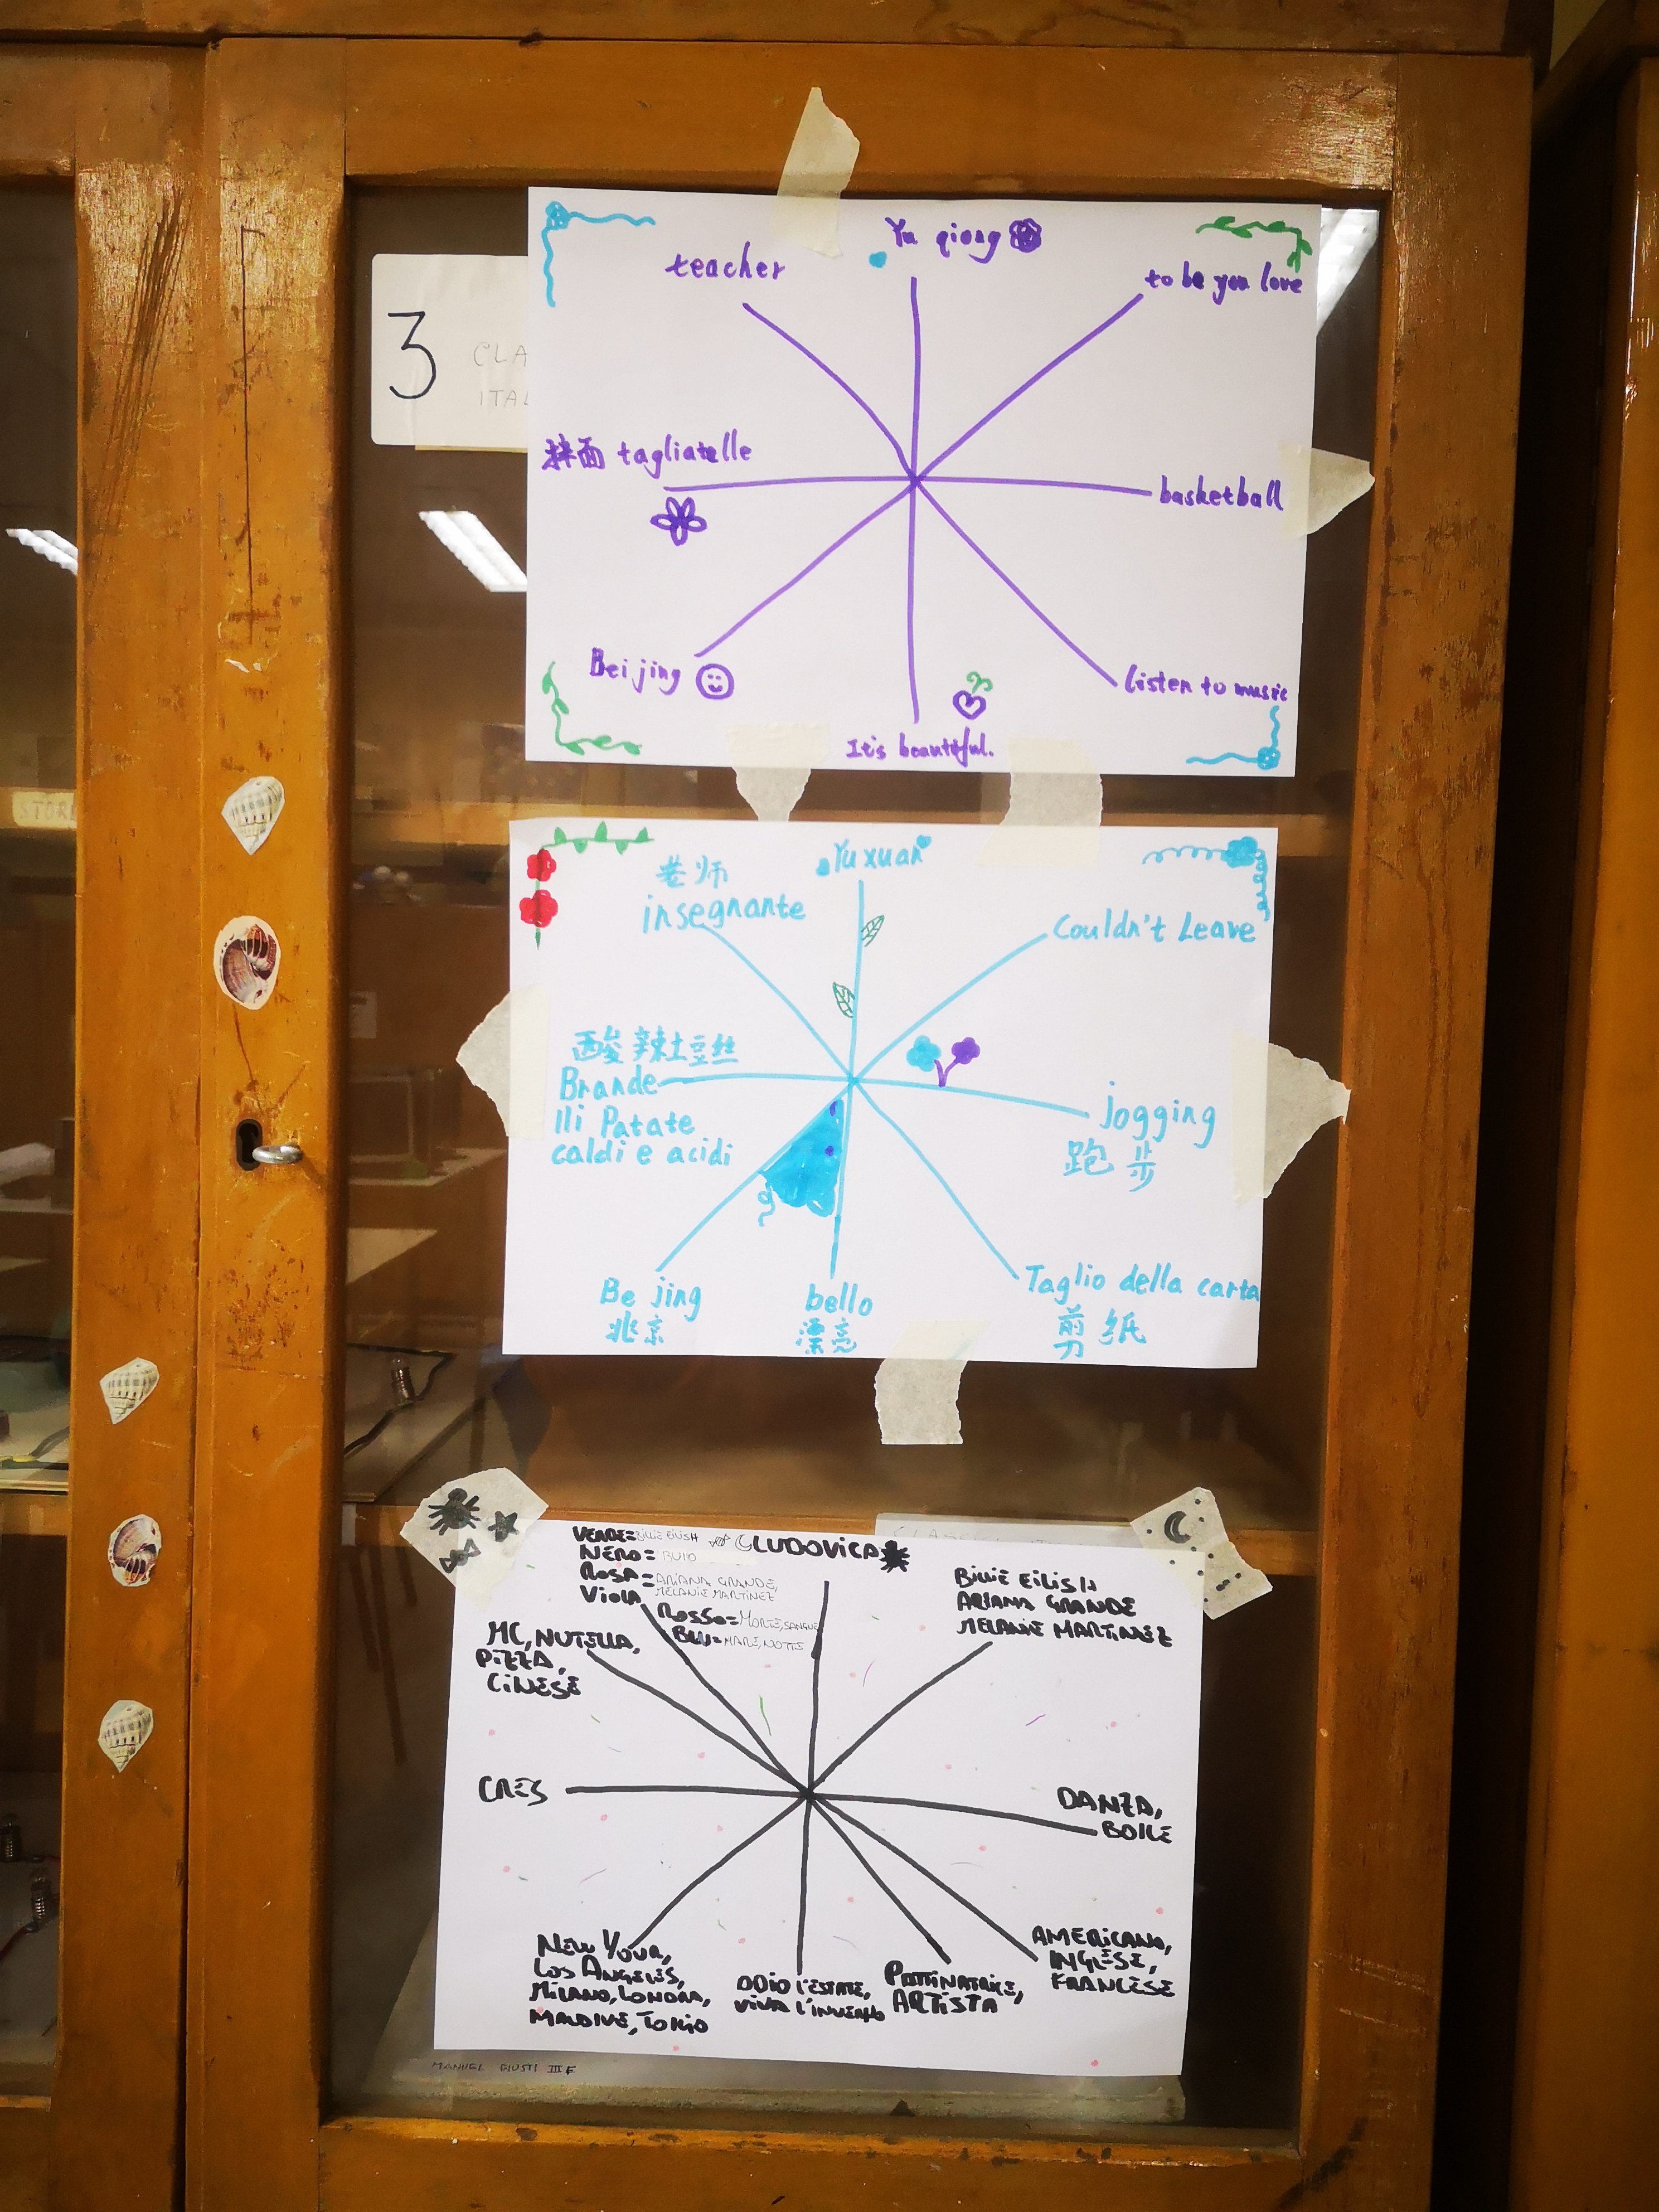 3
CLA
ITAL
Yu qiong
teacher
to be you love
拌面 tagliatelle
basketball
Bei jing
listen to music
It's beautiful.
STOR
Yu xuan
老师
insegnante
Couldn't Leave
酸辣土豆丝
Brande
lli Patate
caldi e acidi
jogging
跑步
Taglio della carta
剪纸
Be jing
北京
bello
漂亮
LUDOVICA
VERDE=BILLIE EILISH
NERO=BUIO
ROSA=ARIANA GRANDE,
VIOLA MELANIE MARTINEZ
ROSSO=MORTE, SANGUE
BLU=MARE, NOTTE
BILLIE EILISH
ARIANA GRANDE
MELANIE MARTINEZ
MC, NUTELLA,
PIZZA,
CINESE
CRES
DANZA,
NEW YORK,
LOS ANGELES,
MILANO, LONDRA,
MALDIVE, TOKIO
ODIO L'ESTATE,
VIVA L'INVERNO
PATTINATRICE,
ARTISTA
AMERICANO,
INGLESE,
FRANCESE
MANUEL GIUSTI III F